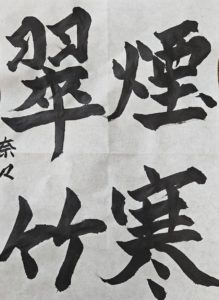 煙寒
翠竹
奈々